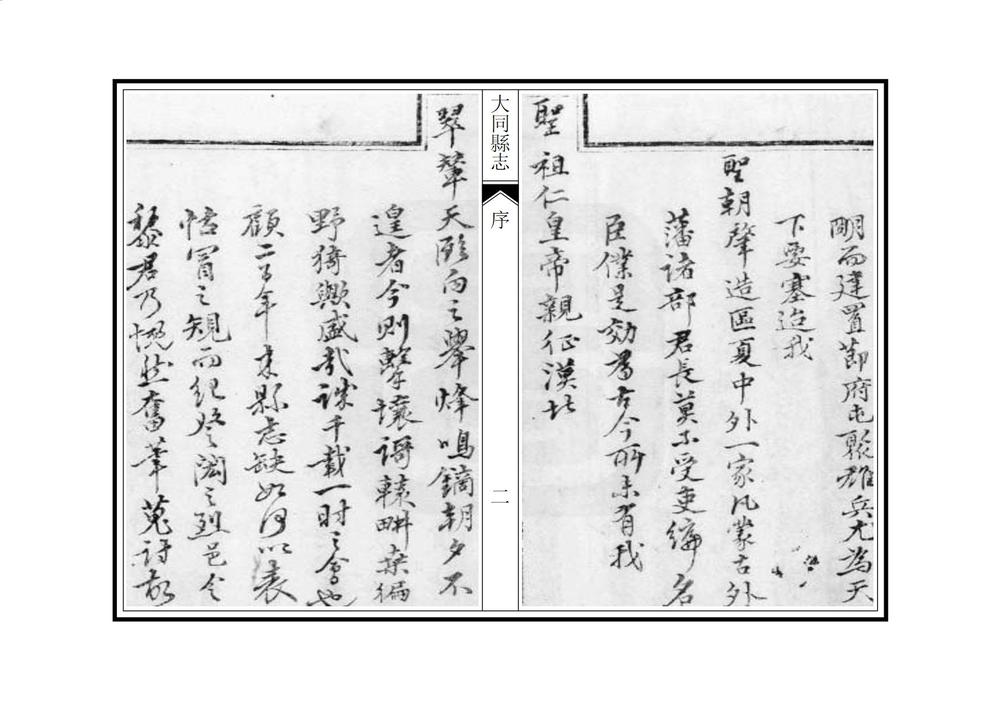 明而建置節府屯聚雄兵尤為天
下要塞迨我
聖朝肇造區夏中外一家凡蒙古外
藩諸部君長莫不受吏編名
臣僕是効為古今所未有我
聖祖仁皇帝親征漠北
大同縣志
序
二
翠華天臨向之舉烽鳴鏑朝夕不
遑者今則擊壤謳轅畊桑徧
野猗歟盛哉誠千載一時之會也
顧二百年來縣志缺如何以表
恬冒之規而紀登閎之烈邑令
黎君乃慨然奮筆蒐討故